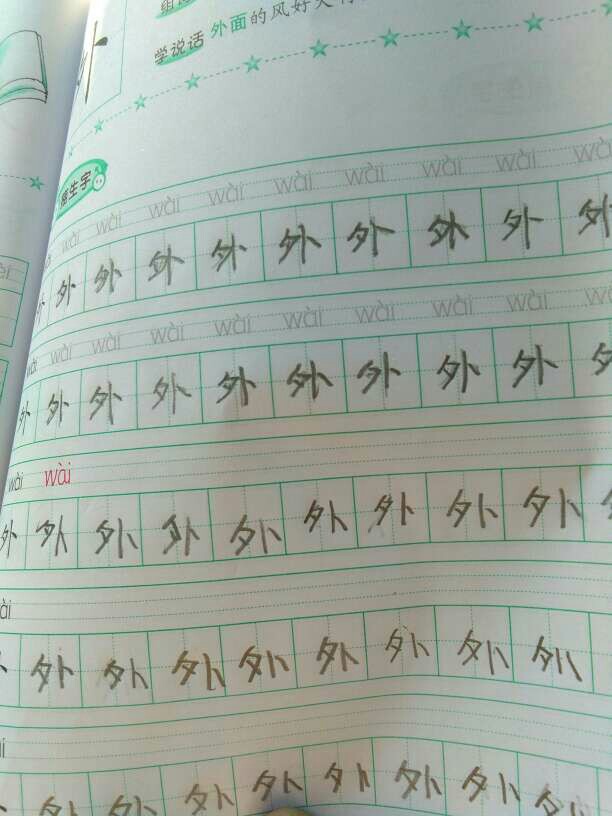 外
学说话 外面的风好大
描生字
wài wài wài wài wài wài wài wài
外 外 外 外 外 外 外 外 外
wài wài wài wài wài wài wài wài wài
外 外 外 外 外 外 外 外 外
wài wài
外 外 外 外 外 外 外 外 外
ài
外 外 外 外 外 外 外 外
外 外 外 外 外 外 外 外